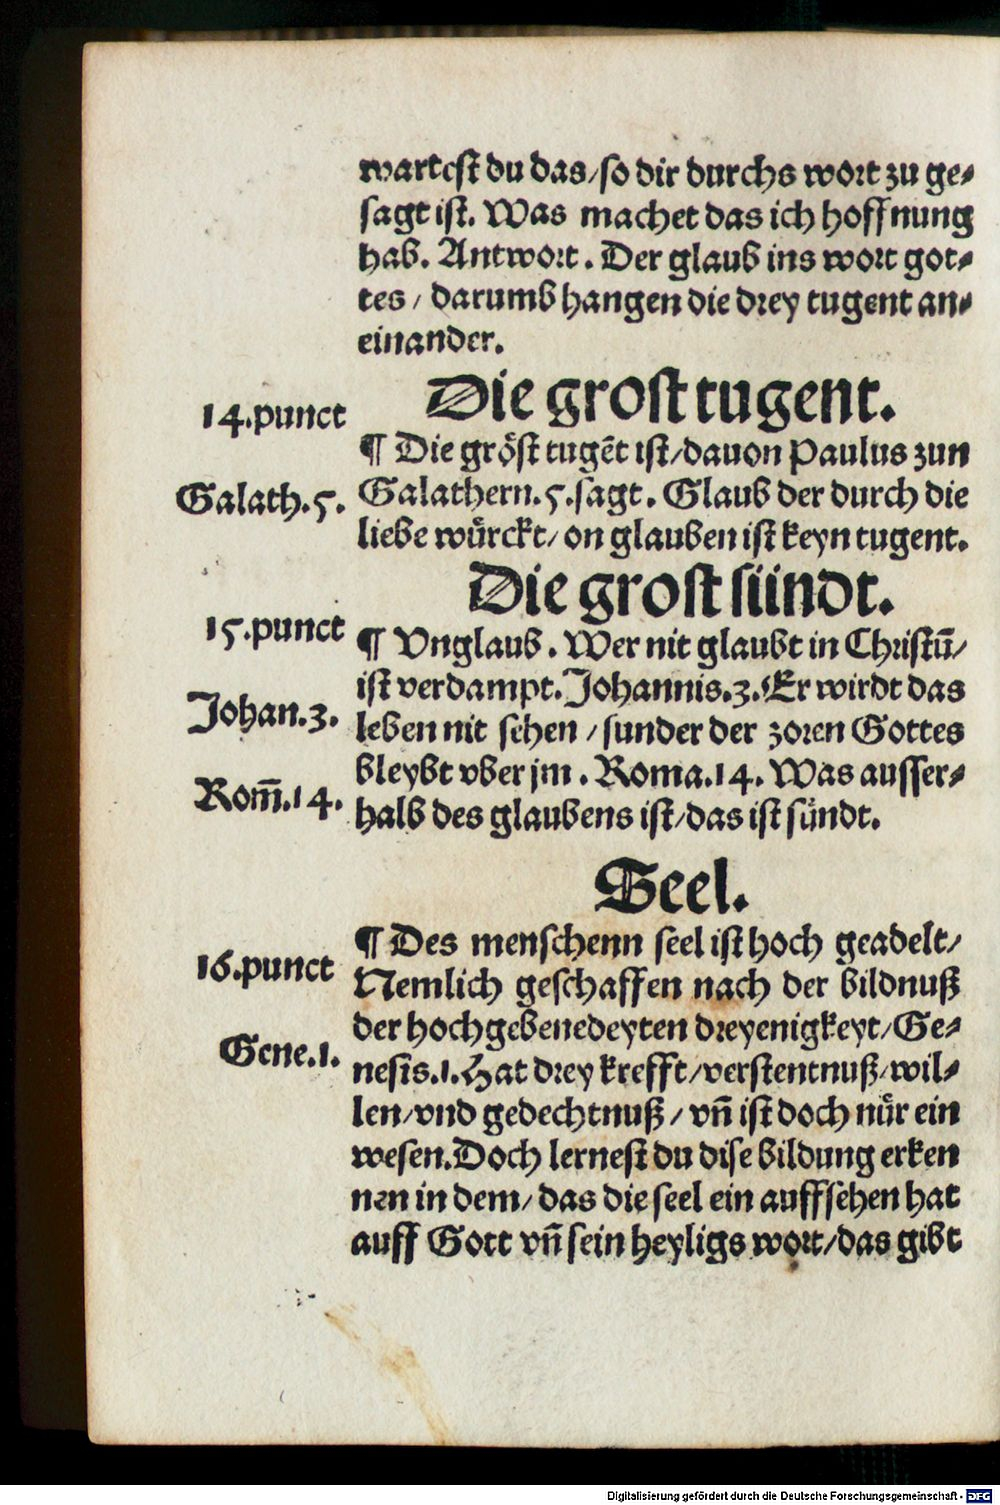 wartest du das/so dir durchs wort zu ge⸗
sagt ist. Was machet das ich hoffnung
hab. Antwort. Der glaub ins wort got⸗
tes / darumb hangen die drey tugent an⸗
einander.
Die grost tugent.
14.punct
¶ Die gröst tugēt ist/dauon Paulus zun
Galath.5.
Galathern.5.sagt. Glaub der durch die
liebe würckt/ on glauben ist keyn tugent.
Die grost sündt.
15.punct
¶ Vnglaub. Wer nit glaubt in Christū/
ist verdampt. Johannis.3. Er wirdt das
Johan.3.
leben nit sehen /sunder der zoren Gottes
bleybt vber jm. Roma.14. Was ausser⸗
Rom̄.14.
halb des glaubens ist/das ist sündt.
Seel.
¶ Des menschenn seel ist hoch geadelt/
16.punct
Nemlich geschaffen nach der bildnuß
der hochgebenedeyten dreyenigkeyt/Ge⸗
Gene.1.
nesis.1. Hat drey krefft/verstentnuß/wil⸗
len/vnd gedechtnuß / vn̄ ist doch nůr ein
wesen. Doch lernest du dise bildung erken
nen in dem/ das die seel ein auffsehen hat
auff Gott vn̄ sein heyligs wort/das gibt
Digitalisierung gefördert durch die Deutsche Forschungsgemeinschaft - DFG